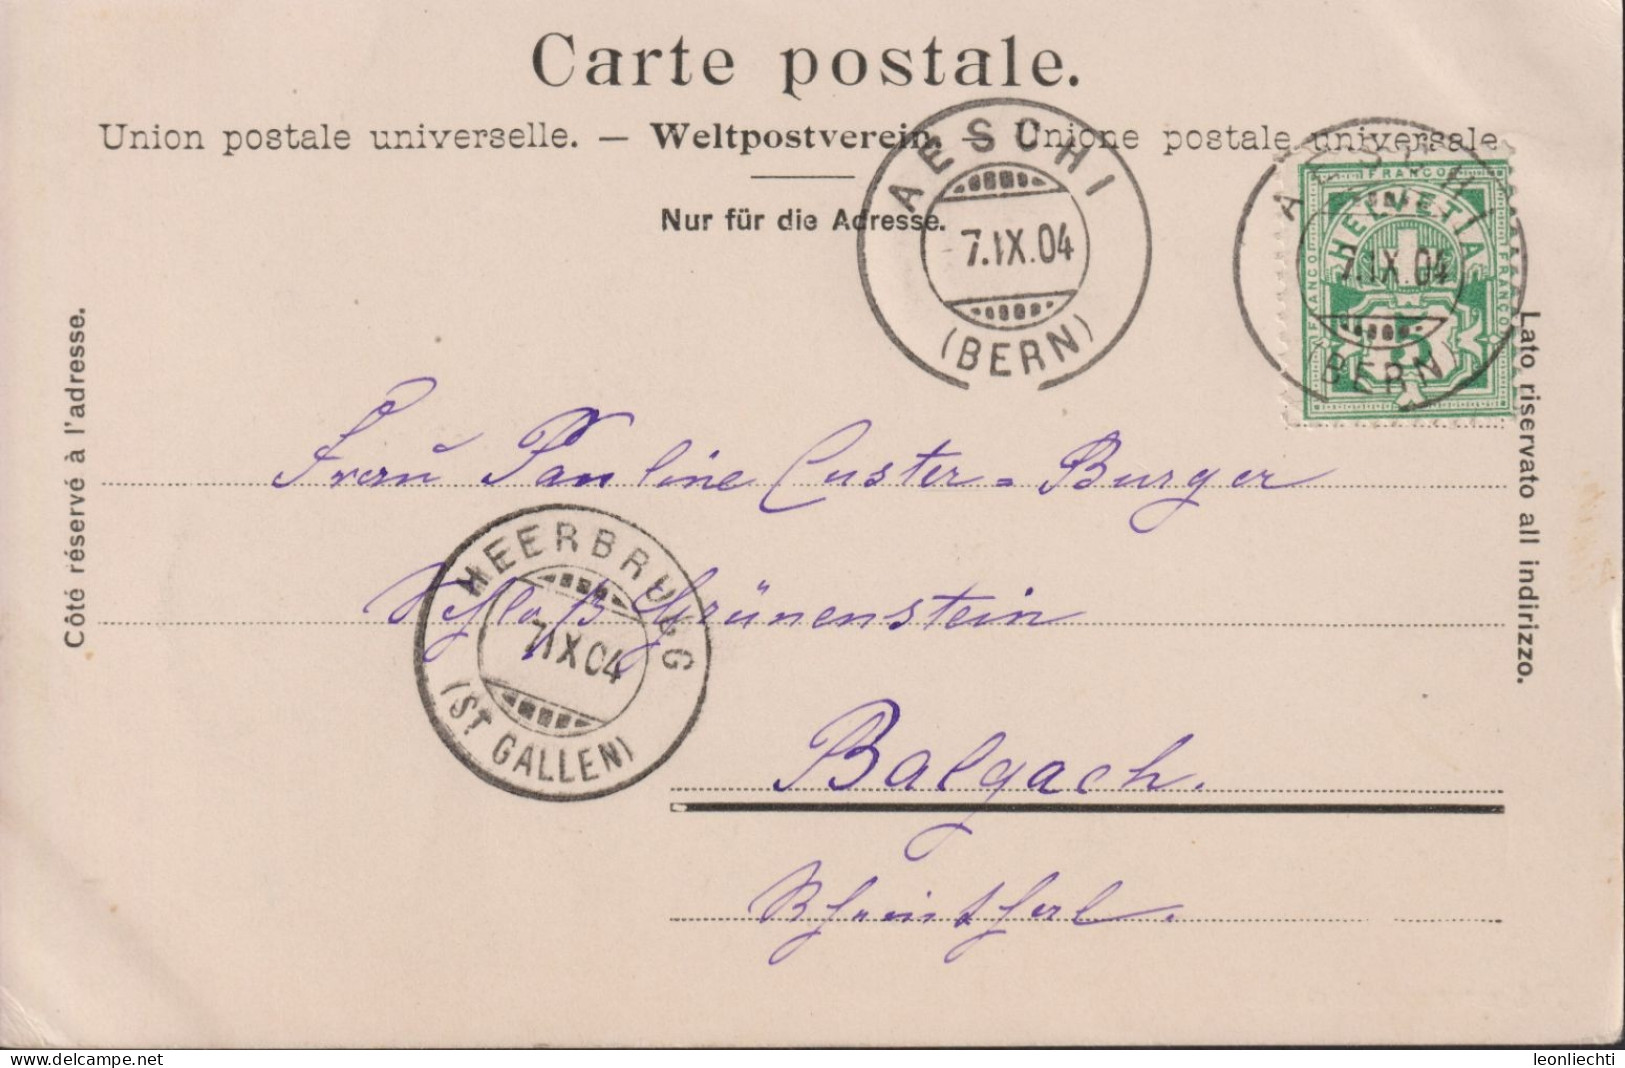 Carte postale.
Union postale universelle. — Weltpostverein. — Unione postale universale
Nur für die Adresse.
AESCHI
7.IX.04
(BERN)
AESCHI
7.IX.04
(BERN)
FRANCO
FRANCO
FRANCO
HELVETIA
5
Côté réservé à l'adresse.
Lato riservato all indirizzo.
Frau Pauline Custer-Burger
Schloß Grünenstein
HEERBRUGG
7.IX.04
(ST. GALLEN)
Balgach.
Rheinthal.
leonliechti